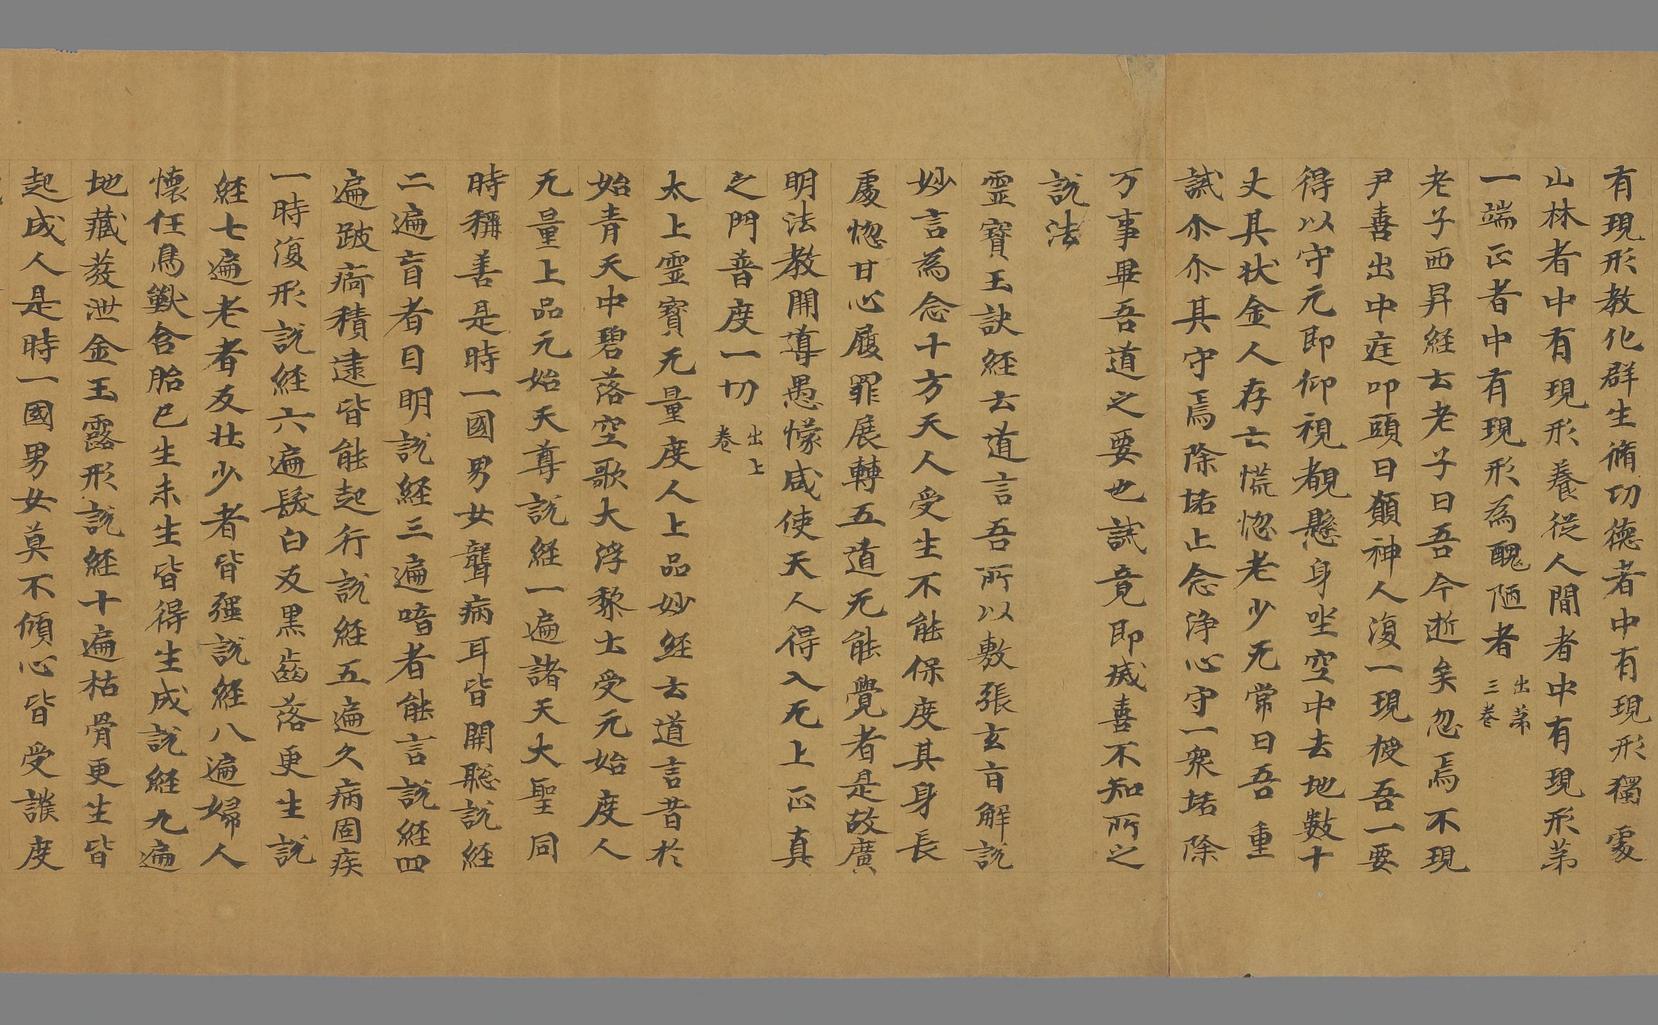 有現形教化群生脩功德者中有現形獨處
山林者中有現形養從人間者中有現形第
一端正者中有現形為醜陋者出第三卷
老子西昇經云老子曰吾今逝矣忽焉不現
尹喜出中庭叩頭曰願神人復一現授吾一要
得以守元即仰視覩懸身坐空中去地數十
丈其状金人存亡慌惚老少无常曰吾重
誡尒尒其守焉除垢止念浄心守一衆垢除
万事畢吾道之要也誡竟即滅喜不知所之
說法
靈寶玉訣經云道言吾所以敷張玄旨解說
妙言為念十方天人受生不能保度其身長
處惚甘心履罪展轉五道无能覺者是故廣
明法教開導愚懞咸使天人得入无上正真
之門普度一切出上卷
太上靈寶无量度人上品妙經云道言昔於
始青天中碧落空歌大浮黎土受元始度人
无量上品元始天尊說經一遍諸天大聖同
時稱善是時一國男女聾病耳皆開聡說經
二遍盲者目明說經三遍喑者能言說經四
遍跛痾積逮皆能起行說經五遍久病固疾
一時復形說經六遍髮白反黒齒落更生說
経七遍老者反壯少者皆強說經八遍婦人
懷任鳥獸含胎已生未生皆得生成說經九遍
地藏發泄金玉露形說經十遍枯骨更生皆
起成人是時一國男女莫不傾心皆受護度